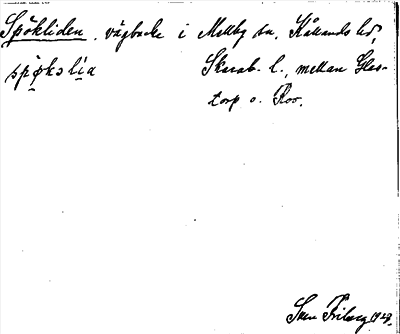 Spökliden, vägbacke i Mellby sn, Kållands hd,
spøkslia Skarab. l., mellan Glas-
torp o. Roo.
Sven Friberg 1929.